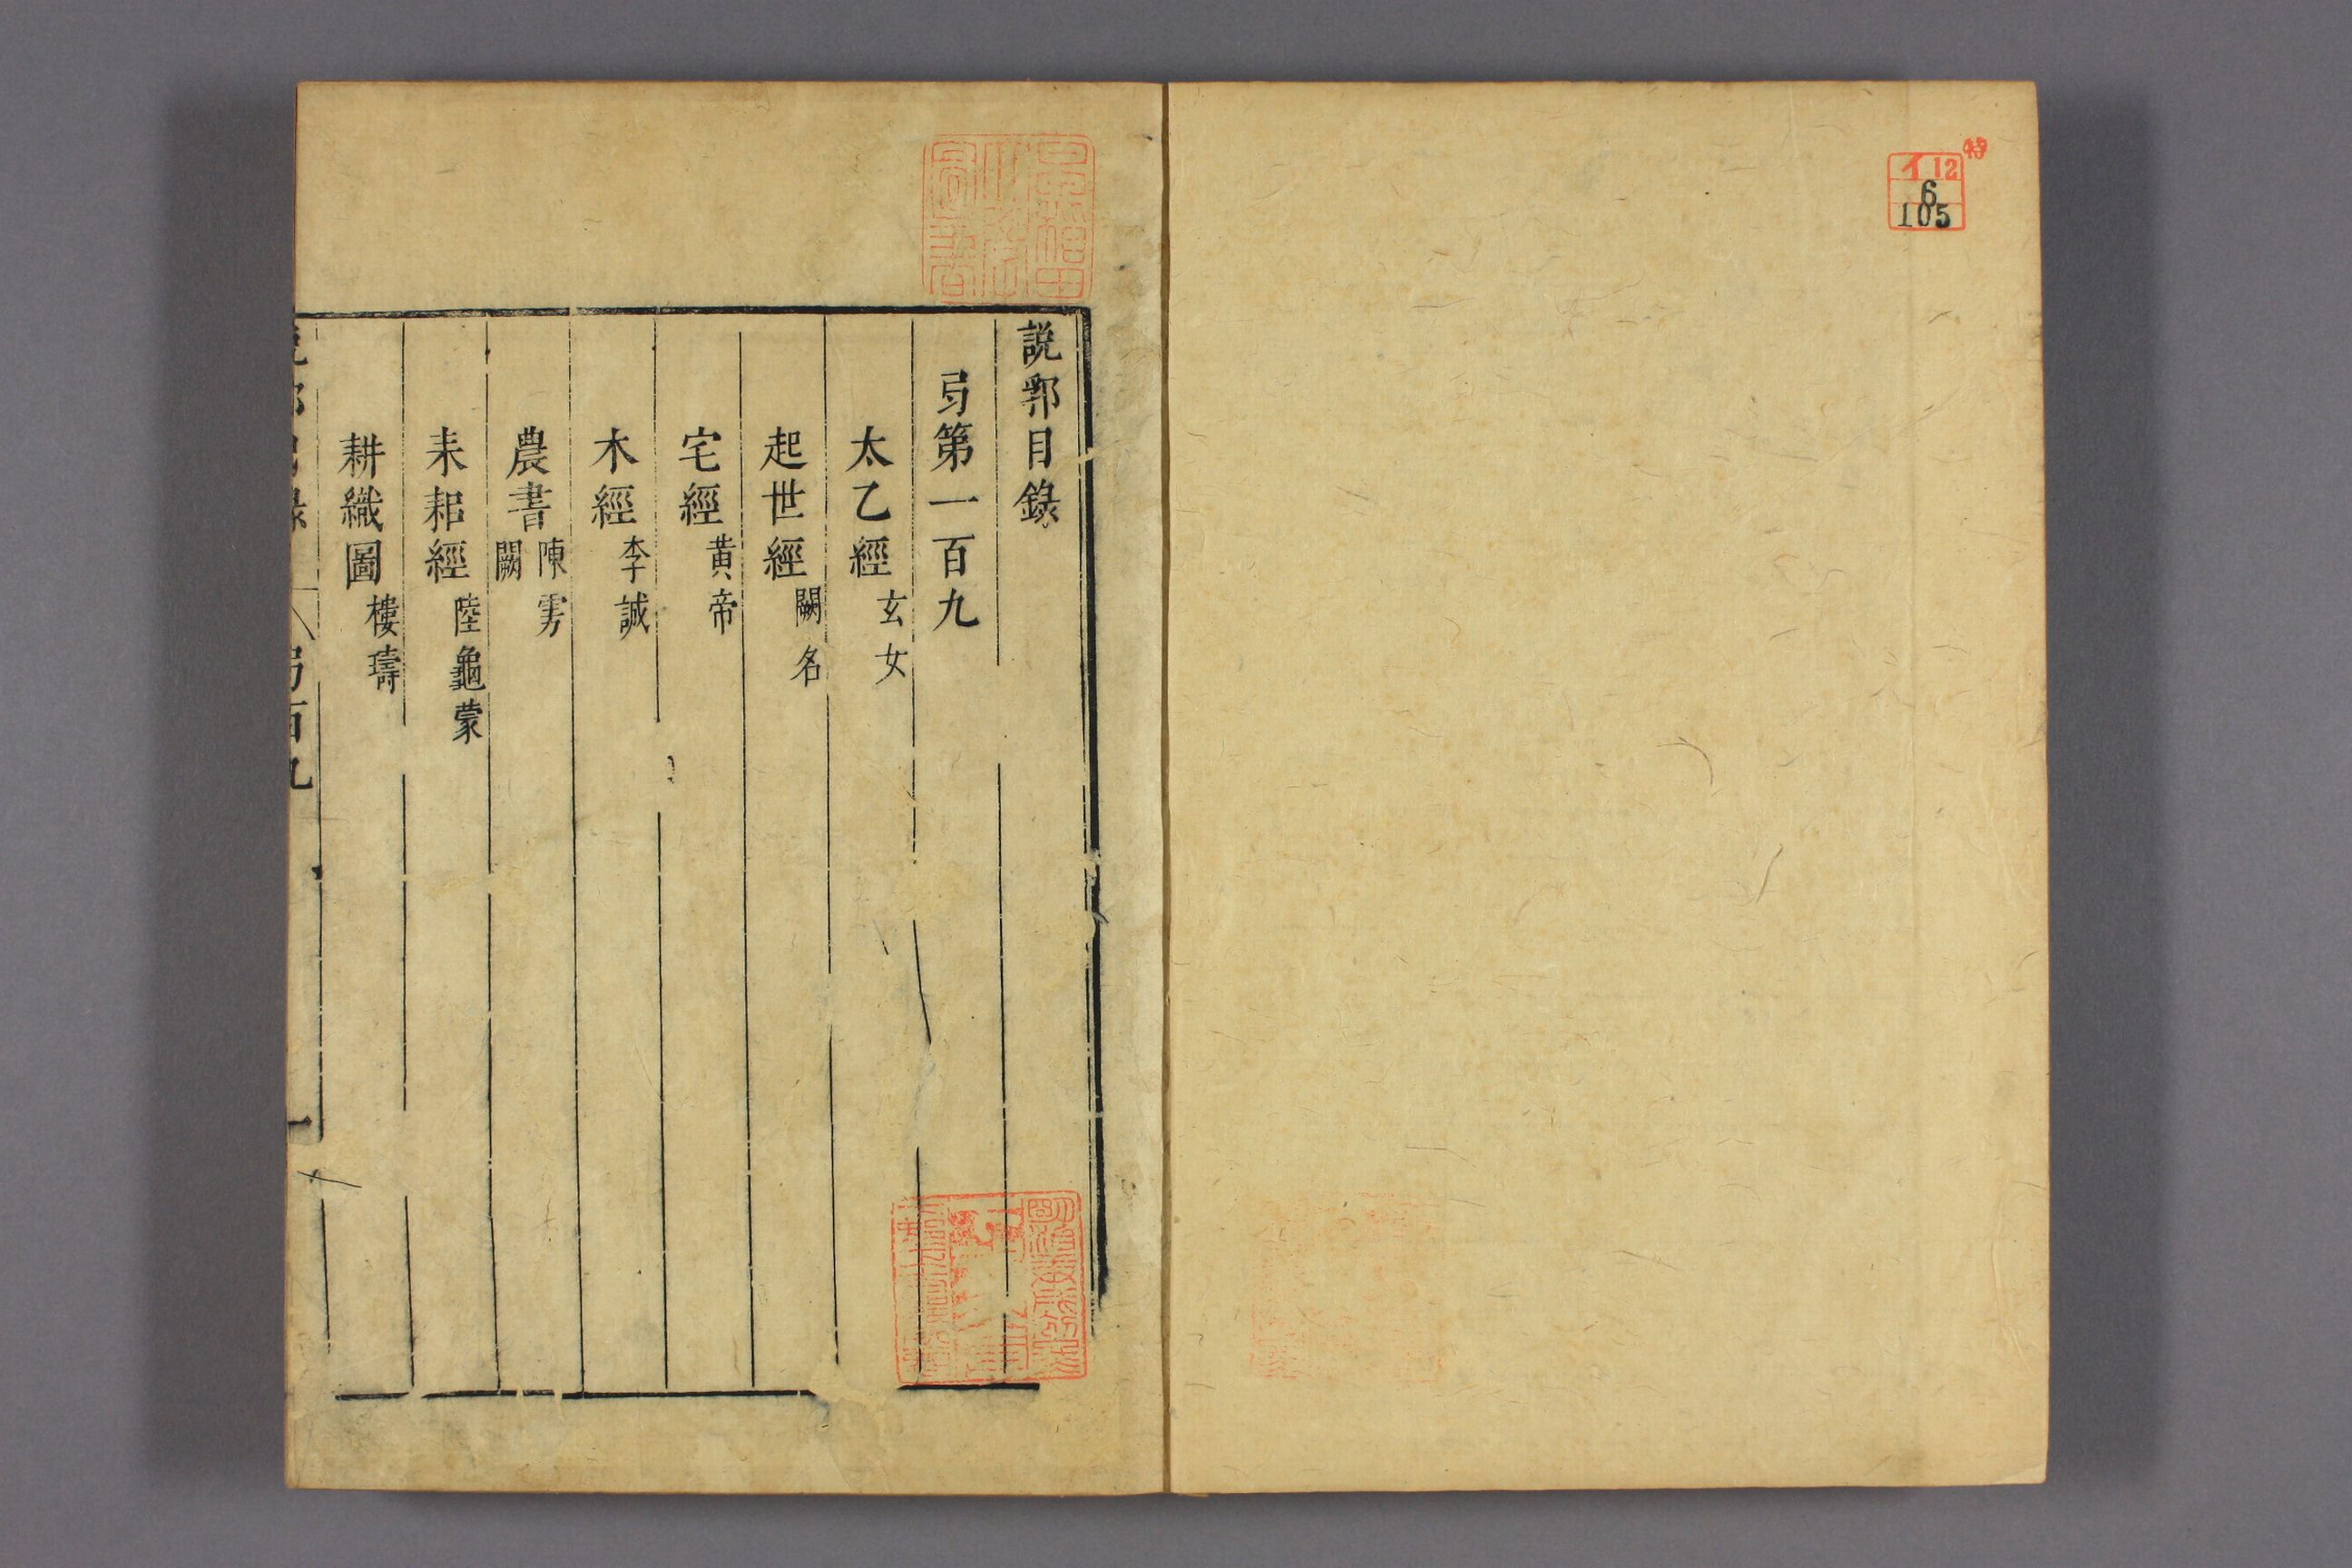 特
イ 12
6
105
説郛目錄
弓第一百九
太乙經 玄女
起世經 闕名
宅經 黄帝
木經 李誡
農書 陳雱 闕
耒耜經 陸龜蒙
耕織圖 樓璹